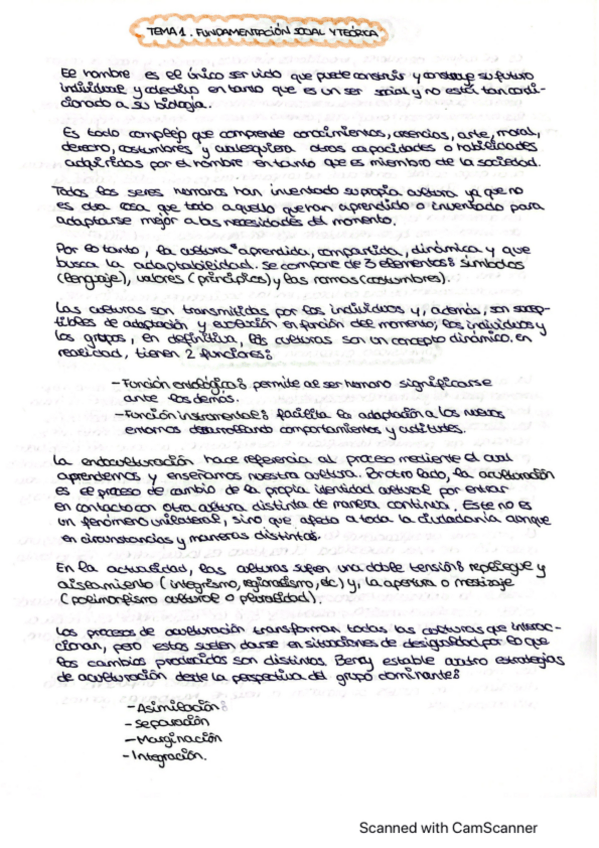 TEMA 1. FUNDAMENTACIÓN SOCIAL Y TEÓRICA
El hombre es el único ser vivo que puede construir y construye su futuro
individual y colectivo en tanto que es un ser social y no está tan condi-
cionado a su biología.
Es todo complejo que comprende conocimientos, creencias, arte, moral,
derecho, costumbres y cualesquiera otras capacidades o habilidades
adquiridas por el hombre en tanto que es miembro de la sociedad.
Todos los seres humanos han inventado su propia cultura ya que no
es otra cosa que todo aquello que han aprendido o inventado para
adaptarse mejor a las necesidades del momento.
Por lo tanto, la cultura aprendida, compartida, dinámica y que
busca la adaptabilidad. Se compone de 3 elementos: símbolos
(lenguaje), valores (principios) y las normas (costumbres).
Las culturas son transmitidas por los individuos y, además, son suscep-
tibles de adaptación y evolución en función del momento, los individuos y
los grupos, en definitiva, las culturas son un concepto dinámico. en
realidad, tienen 2 funciones:
- Función ontológica: permite al ser humano significarse
ante los demás.
- Función instrumental: facilita la adaptación a los nuevos
entornos desarrollando comportamientos y actitudes.
La endoculturación hace referencia al proceso mediante el cual
aprendemos y enseñamos nuestra cultura. Por otro lado, la aculturación
es el proceso de cambio de la propia identidad cultural por entrar
en contacto con otra cultura distinta de manera continua. Este no es
un fenómeno unilateral, sino que afecta a toda la ciudadanía aunque
en circunstancias y maneras distintas.
En la actualidad, las culturas sufren una doble tensión: repliegue y
aislamiento (integrismo, regionalismo, etc) y, la apertura o mestizaje
(polimorfismo cultural o pluralidad).
Los procesos de aculturación transforman todas las culturas que interac-
cionan, pero estos suelen darse en situaciones de desigualdad por lo que
los cambios producidos son distintos. Berry establece cuatro estrategias
de aculturación desde la perspectiva del grupo dominante:
- Asimilación:
- separación
- Marginación
- Integración.
Scanned with CamScanner